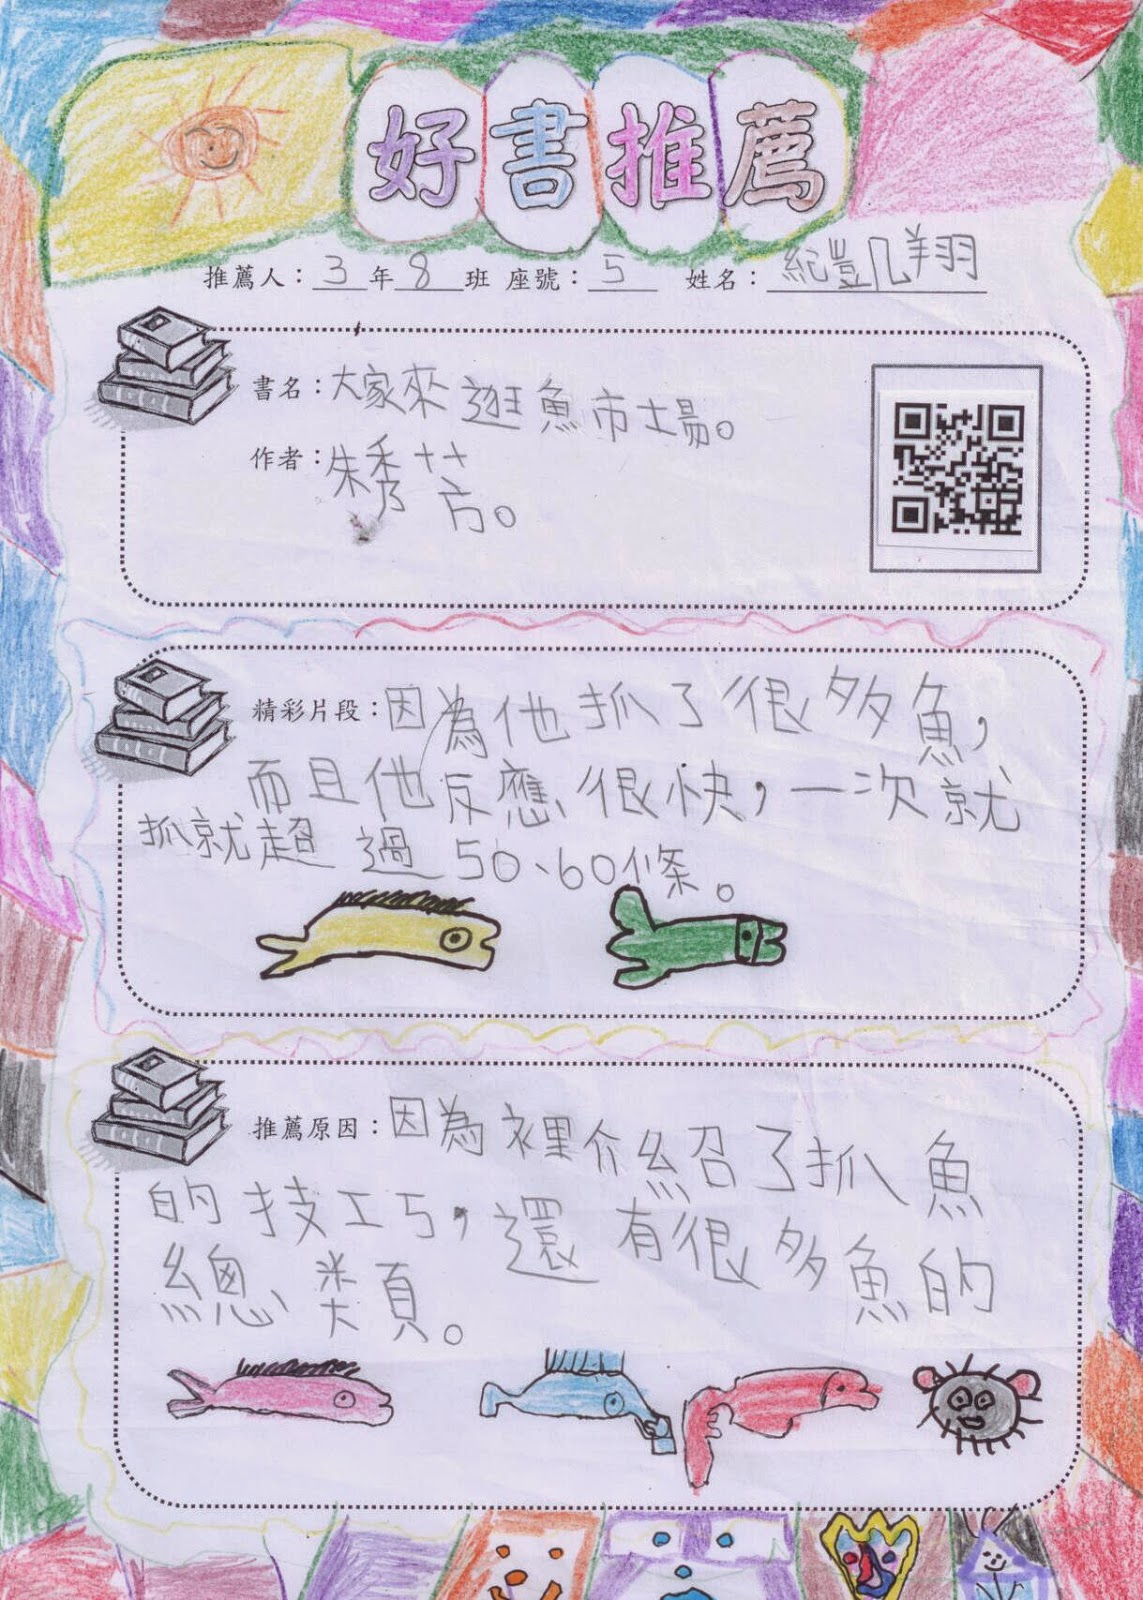 好書推薦
推薦人：3年8班 座號：5 姓名：紀凱翔
書名：大家來逛魚市場。
作者：朱秀芳。
精彩片段：因為他抓了很多魚，
而且他反應很快，一次就
抓就超過50、60條。
推薦原因：因為裡介紹了抓魚
的技巧，還有很多魚的
總類。